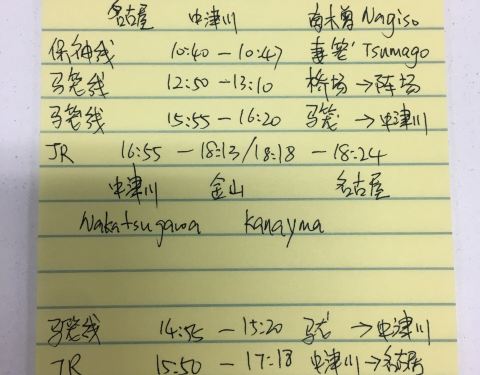 名古屋 中津川 南木曽 Nagiso
保神线 10:40 — 10:47 妻笼 Tsumago
马笼线 12:50 — 13:10 桥场 → 阵场
马笼线 15:55 — 16:20 马笼 → 中津川
JR 16:55 — 18:13/18:18 — 18:24
中津川 金山 名古屋
Nakatsugawa Kanayma
马笼线 14:55 — 15:20 马笼 → 中津川
JR 15:50 — 17:18 中津川 → 名古屋